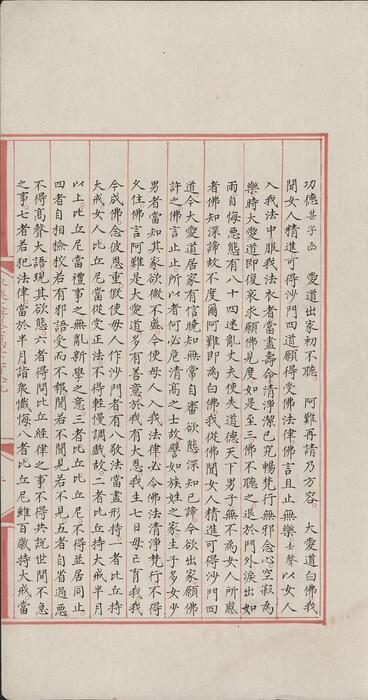 功德 甚子函　愛道出家初不聽　阿難再請乃方容　大愛道白佛我
聞女人精進可得沙門四道願得受佛法律佛言且止無樂去聲以女人
入我法中服我法衣者當盡壽命清淨潔已究暢梵行無邪念心空寂為
樂時大愛道即復哀求願佛見度如是至三佛不聽之退於門外淚出如
雨自悔惡態有八十四迷亂丈夫使失道德天下男子無不為女人所惑
者佛知深諦故不度爾阿難即為白佛我從佛聞女人精進可得沙門四
道今大愛道居家有信曉知無常自審欲態深知已諦今欲出家願佛
許之佛言止止所以者何必危清高之士故譬如族姓之家生子多女少
男者當知其家欲微不盛今使母人入我法律必令佛法清淨梵行不得
久住佛言阿難是大愛道多有善意於我有大恩我生七日母亡育我我
今成佛念彼恩重假使母人作沙門者有八敬法當盡形持一者比丘持
大戒女人比丘尼當從受正法不得輕慢調戲故二者比丘持大戒半月
以上比丘尼當禮事之無亂新學之意三者比丘比丘尼不得並居同止
四者自相撿校若有邪語受而不報聞若不聞見若不見五者自省過惡
不得高聲大語現其欲態六者得問比丘經律之事不得共說世間不急
之事七者若犯法律當於半月詣眾懺悔八者比丘尼雖百歲持大戒當